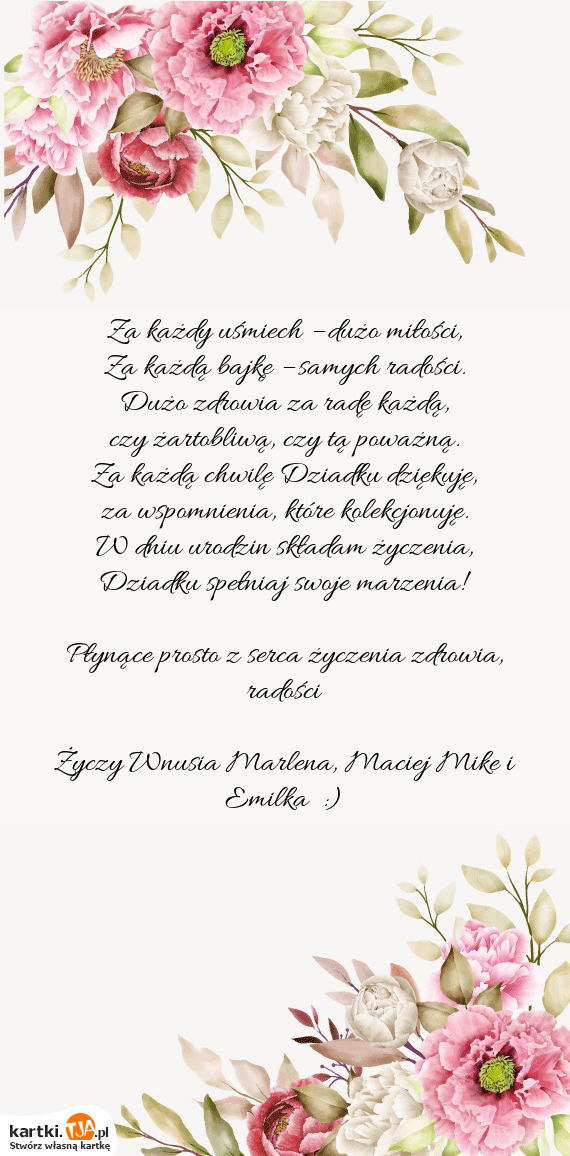 Za każdy uśmiech – dużo miłości,
Za każdą bajkę – samych radości.
Dużo zdrowia za radę każdą,
czy żartobliwą, czy tą poważną.
Za każdą chwilę Dziadku dziękuję,
za wspomnienia, które kolekcjonuję.
W dniu urodzin składam życzenia,
Dziadku spełniaj swoje marzenia!
Płynące prosto z serca życzenia zdrowia,
radości
Życzy Wnusia Marlena, Maciej Mike i
Emilka :)
kartki.TJA.pl
Stwórz własną kartkę